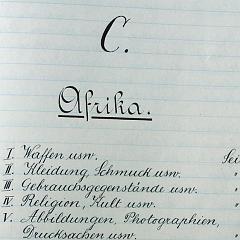 C.
Afrika.
I. Waffen usw. Sei
II. Kleidung, Schmuck usw. "
III. Gebrauchsgegenstände usw. "
IV. Religion, Kult usw. "
V. Abbildungen, Photographien,
Drucksachen usw. "